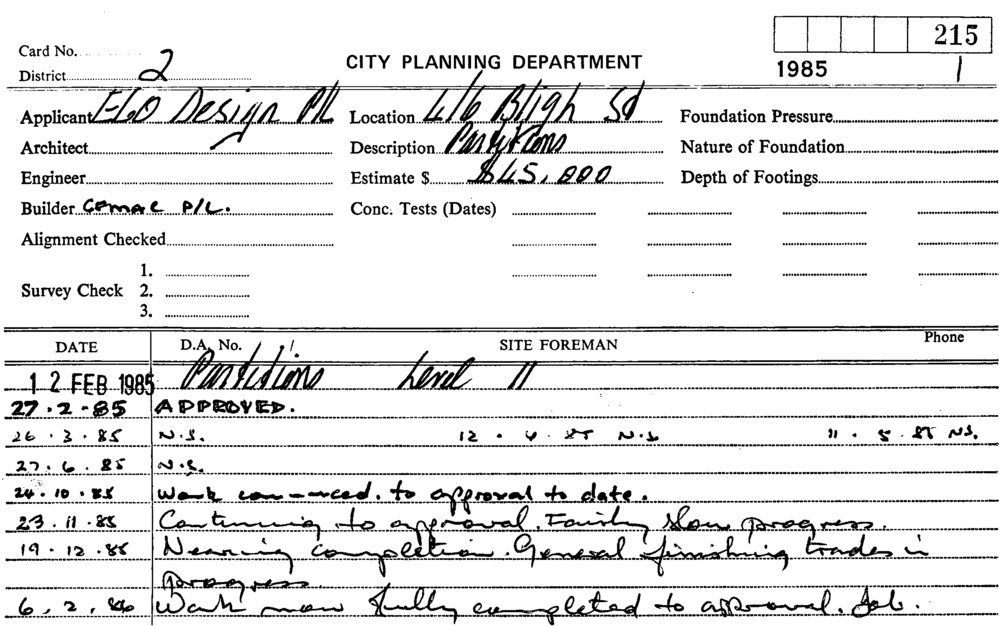 215
Card No.
District 2
CITY PLANNING DEPARTMENT
1985 1
Applicant EGO Design P/L Location 4/6 Bligh St Foundation Pressure
Architect Description Partitions Nature of Foundation
Engineer Estimate $ $45,000 Depth of Footings
Builder Gemac P/L. Conc. Tests (Dates)
Alignment Checked
1.
Survey Check 2.
3.
DATE D.A. No. / / SITE FOREMAN Phone
12 FEB 1985 Partitions Level 11
27.2.85 APPROVED.
26.3.85 N.S. 12.4.85 N.S. 11.5.85 N.S.
27.6.85 N.S.
24.10.85 Work commenced. to approval to date.
23.11.85 Continuing to approval. Fairly slow progress.
19.12.85 Nearing completion. General finishing trades in
progress.
6.2.86 Work now fully completed to approval. Job.